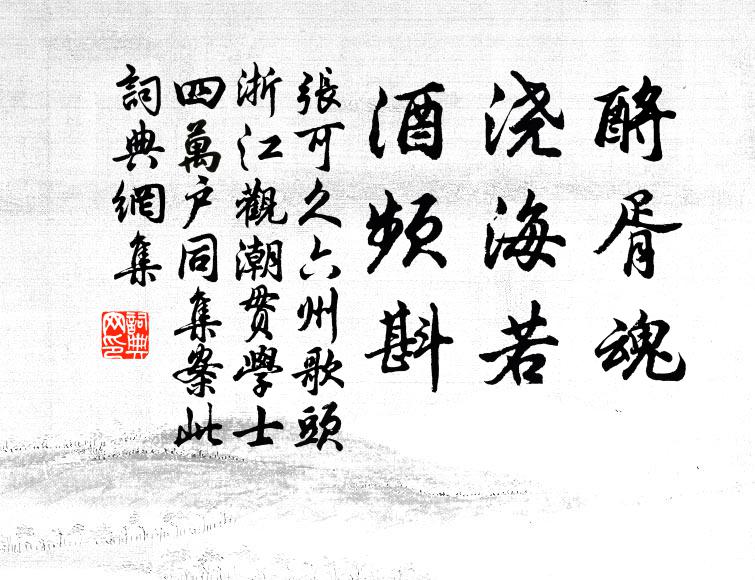 酹胥魂
浇海若
酒频斟
張可久六州歌頭
浙江觀潮貫學士
四萬户同集案此
詞典網集
詞典
网印